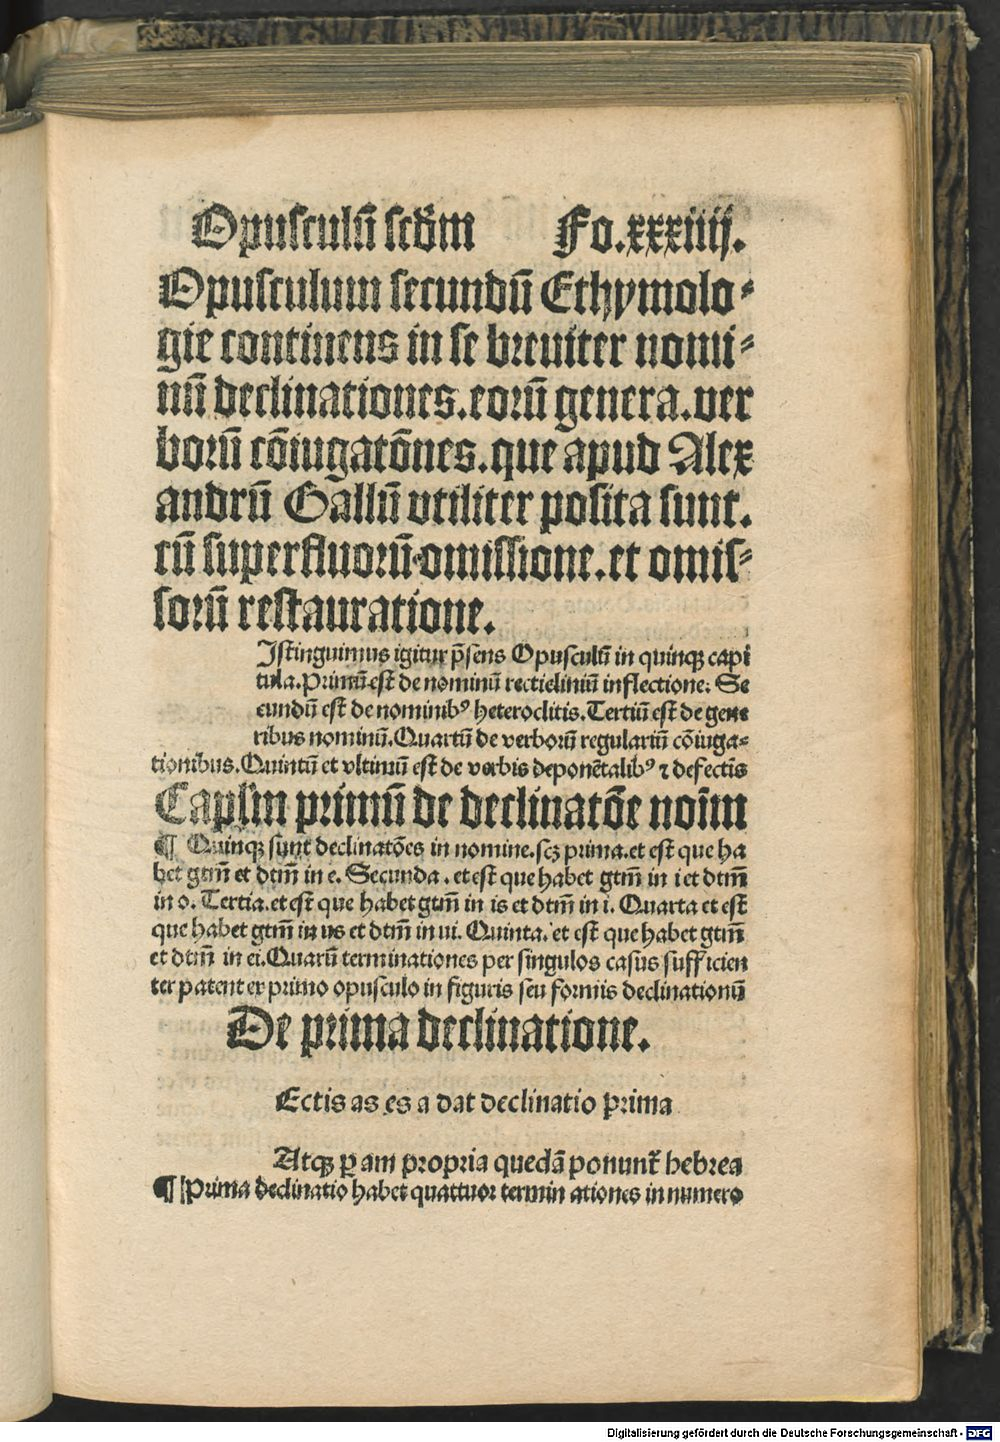 Opusculū scďm Fo.xxxiiij.
Opusculum secundū Ethymolo⸗
gie continens in se breuiter nomi⸗
nū declinationes.eorū genera.ver
borū cōiugatōnes.que apud Alex
andrū Gallū vtiliter posita sunt.
cū superfluorū omissione.et omis⸗
sorū restauratione.
Istinguimus igitur p̄sens Opusculū in quinqȝ capi
tula.Primū est de nominū rectieliniū inflectione: Se
cundū est de nominibꝰ heteroclitis.Tertiū est de gene
ribus nominū.Quartū de verborū regulariū cōiuga⸗
tionibus.Quintū et vltimū est de verbis deponētalibꝰ ⁊ defectis
Capl'm primū de declinatōe noīm
¶ Quinqȝ sunt declinatōes in nomine.scȝ prima.et est que ha
bet gtm̄ et dtm̄ in e. Secunda.et est que habet gtm̄ in i et dtm̄
in o. Tertia.et est que habet gtm̄ in is et dtm̄ in i. Quarta et est
que habet gtm̄ in us et dtm̄ in ui. Quinta. et est que habet gtm̄
et dtm̄ in ei.Quarū terminationes per singulos casus sufficien
ter patent ex primo opusculo in figuris seu formis declinationū
De prima declinatione.
Ectis as es a dat declinatio prima
Atqȝ ꝑ am propria quedā ponunt᷑ hebrea
¶ Prima declinatio habet quattuor termin ationes in numero
Digitalisierung gefördert durch die Deutsche Forschungsgemeinschaft - DFG